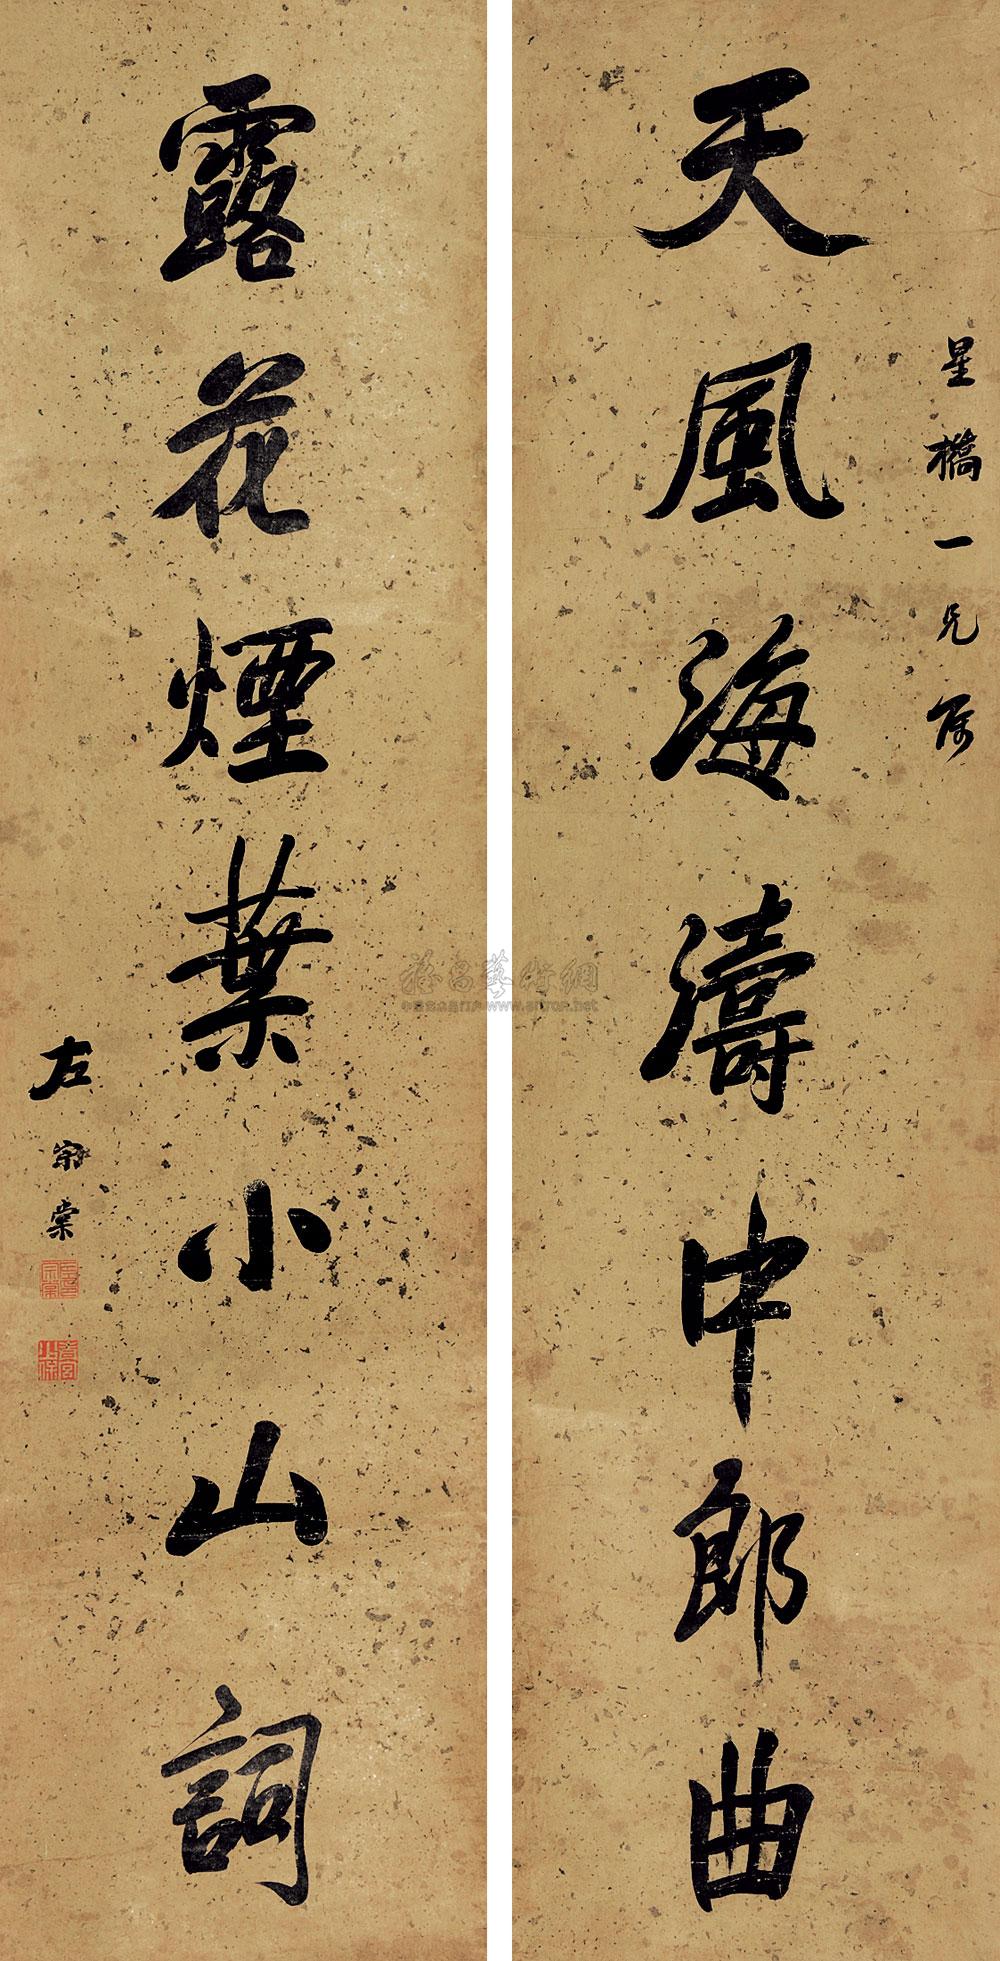 星橋一兄屬
天風海濤中郎曲
露花煙葉小山詞
左宗棠
雅昌藝術網
www.artron.net